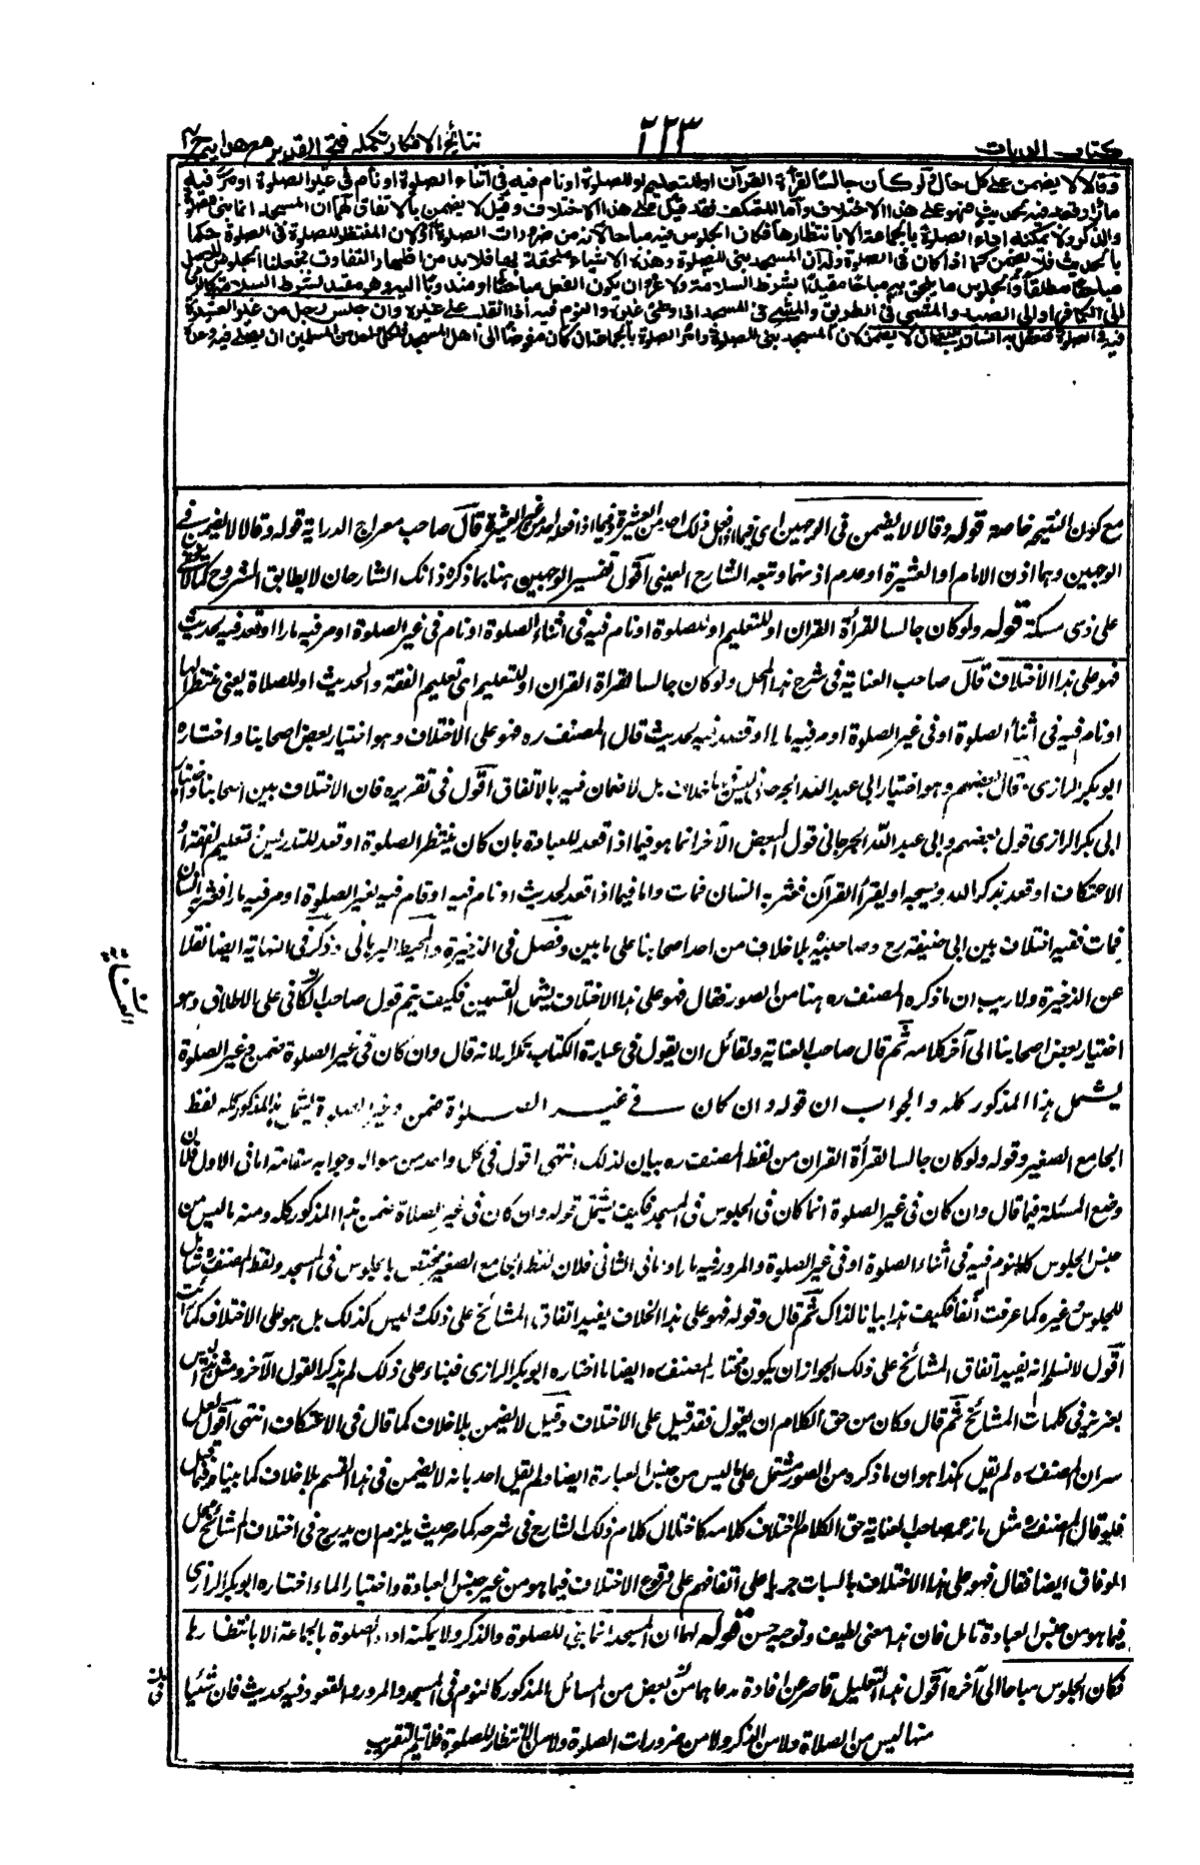 كتاب الديات
٢٢٣
نتائج الافكار تكملة فتح القدير مع هداية ج ٤
وقالا لا يضمن على كل حال ولو كان جالسا لقرأة القرآن او للتعليم او للصلوة او نام فيه فى اثناء الصلوة او نام فى غير الصلوة او مر فيه
مارا او قعد فيه لحديث فهو على هذا الاختلاف واما المعتكف فقد قيل على هذا الاختلاف وقيل لا يضمن بالاتفاق لهما ان المسجد انما بنى للصلوة
والذكر ولا يمكنه اداء الصلوة بالجماعة الا بانتظارها فكان الجلوس فيه مباحا لانه من ضرورات الصلوة او لان المنتظر للصلوة فى الصلوة حكما
بالحديث فلا يضمن كما اذا كان فى الصلوة وله ان المسجد بنى للصلوة وهذه الاشياء ملحقة بها فلا بد من اظهار التفاوت فجعلنا الجلوس للاصل
مباحا مطلقا والجلوس لما يلحق به مباحا مقيدا بشرط السلامة ولا غرو ان يكون الفعل مباحا او مندوبا اليه وهو مقيد بشرط السلامة كالرمى
الى الكافر او الى الصيد والمشى فى الطريق والمشى فى المسجد اذا وطئ غيره والنوم فيه اذا انقلب على غيره وان جلس رجل من غير العشيرة
فيه فى الصلوة فتعقل به انسان ينبغى ان لا يضمن لان المسجد بنى للصلوة وامر الصلوة بالجماعة ان كان مفوضا الى اهل المسجد فلكل واحد من المسلمين ان يصلى فيه وحده
مع كون النتيجة خاصة قوله وقالا لا يضمن فى الوجهين اى فيما اذا فعل ذلك احد من العشيرة وفيما اذا فعله احد من غير العشيرة قال صاحب معراج الدراية قوله وقالا لا يضمن فى
الوجهين وهما اذن الامام او العشيرة او عدم اذنهما وتبعه الشارح العينى اقول تفسير الوجهين هنا بما ذكره ذانك الشارحان لا يطابق المشروح كما لا يخفى
على ذى مسكة قوله ولو كان جالسا لقرأة القران او للتعليم او للصلوة او نام فيه فى اثناء الصلوة او نام فى غير الصلوة او مر فيه مارا او قعد فيه لحديث
فهو على هذا الاختلاف قال صاحب العناية فى شرح هذا المحل ولو كان جالسا لقراة القران او للتعليم اى تعليم الفقه والحديث او للصلاة يعنى منتظرا لها
او نام فيه فى أثناء الصلوة او فى غير الصلوة او مر فيه مارا او قعد فيه لحديث قال المصنف ره فهو على الاختلاف وهو اختيار بعض اصحابنا واختاره
ابو بكر الرازى وقال بعضهم وهو اختيار ابى عبد الله الجرجانى ليس فيه خلاف بل لا ضمان فيه بالاتفاق اقول فى تقريره فان الاختلاف بين اصحابنا واختيار
ابى بكر الرازى قول بعضهم وابى عبد الله الجرجانى قول البعض الآخر انما هو فيما اذا قعد للعبادة بان كان ينتظر الصلوة او قعد للتدريس وتعليم الفقه او
الاعتكاف او قعد يذكر الله ويسبحه او يقرأ القرآن فعثر به انسان فمات واما فيما اذا قعد لحديث او نام فيه او قام فيه لغير الصلوة او مر فيه مارا فعثر به انسان
فمات ففيه اختلاف بين ابى حنيفة رح وصاحبيه بلا خلاف من احد اصحابنا على ما بين وفصل فى الذخيرة والمحيط البرهانى وذكر فى النهاية ايضا نقلا
عن الذخيرة ولا ريب ان ما ذكره المصنف ره هنا من الصور فقال فهو على هذا الاختلاف يشمل القسمين فكيف يتم قول صاحب الكافى على الاطلاق وهو
اختيار بعض اصحابنا الى آخر كلامه ثم قال صاحب العناية ولقائل ان يقول فى عبارة الكتاب تكرار لانه قال وان كان فى غير الصلوة ضمن وغير الصلوة
يشمل هذا المذكور كله والجواب ان قوله وان كان فى غير الصلوة ضمن وغير الصلوة يشمل هذا المذكور كله لفظ
الجامع الصغير وقوله ولو كان جالسا لقرأة القران من لفظ المصنف ره بيان لذلك انتهى اقول فى كل واحد من سواله وجوابه سقامة اما فى الاول فلان
وضع المسئلة فيما قال وان كان فى غير الصلوة انما كان فى الجلوس فى المسجد فكيف يشتمل قوله وان كان فى غير الصلاة ضمن هذا المذكور كله ومنه ما ليس من
جنس الجلوس كالنوم فيه فى أثناء الصلوة او فى غير الصلوة والمرور فيه مارا واما فى الثانى فلان لفظ الجامع الصغير مختص بالجلوس فى المسجد ولفظ المصنف شامل
للجلوس وغيره كما عرفت آنفا فكيف هذا بيانا لذاك ثم قال وقوله فهو على هذا الخلاف يفيد اتفاق المشائخ على ذلك وليس كذلك بل هو على الاختلاف كما رأيت
اقول لا نسلم انه يفيد اتفاق المشائخ على ذلك لجواز ان يكون مختار المصنف ره ايضا ما اختاره ابو بكر الرازى فبناء على ذلك لم يذكر القول الآخر ومثل هذا ليس
بعزيز فى كلمات المشائخ ثم قال وكان من حق الكلام ان يقول فقد قيل على الاختلاف وقيل لا يضمن بلا خلاف كما قال فى الاعتكاف انتهى اقول لعل
سر ان المصنف ره لم يقل هكذا هو ان ما ذكره من الصور مشتمل على ما ليس من جنس العبارة ايضا ولم يقل احد بانه لا يضمن فى هذا القسم بلا خلاف كما بينا فيما قبل
فلو قال المصنف ره مثل ما زعمه صاحب العناية حق الكلام لاختل كلامه كاختلال كلام ذلك الشارح فى شرحه كما مر حيث يلزم ان يدرج فى اختلاف المشائخ محل
الوفاق ايضا فقال فهو على هذا الاختلاف بالبتات جريا على اتفاقهم على وقوع الاختلاف فيما هو من غير جنس العبادة واختيارا لما اختاره ابو بكر الرازى
فيما هو من جنس العبادة تامل فان هذا معنى لطيف وتوجيه حسن قوله لهما ان المسجد انما بنى للصلوة والذكر ولا يمكنه اداء الصلوة بالجماعة الا بانتظارها
فكان الجلوس مباحا الى آخره اقول هذا التعليل قاصر عن افادة مدعاهما من بعض من المسائل المذكورة كالنوم فى المسجد والمرور والقعود فيه لحديث فان شيئا
منها ليس من الصلاة ولا من الذكر ولا من ضرورات الصلوة ولا من الانتظار للصلوة فلا يتم التقريب